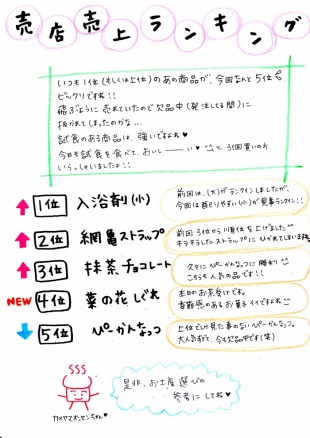 売店売上ランキング
いつも1位(もしくは上位)のあの商品が、今回なんと5位
ビックリですね!!
飛ぶように売れていたので欠品中(発注してる間)に
抜かれてしまったのかな…
試食のある商品は、強いですよね♥
今日も試食を食べて、おいしーーい♥^^と3個買いの方
いらっしゃいましたよ!!
1位 入浴剤(小)
前回は、(大)がランクインしましたが、
今回は(小)が見事ランクイン!!
2位 網亀ストラップ
前回3位から順位を上げました
キラキラしたストラップにひかれてしまいます
3位 抹茶チョコレート
久々にぴーかんなっつに勝利
こちらも人気の品です!!
NEW 4位 菜の花しぐれ
本日のお茶受けです。
季節感のあるお菓子イイですね
5位 ぴーかんなっつ
上位でしか見た事のないぴーかんなっつ。
大人気すぎて、今も欠品中です(笑)
是非、お土産選びの
参考にしてね♥
カメヤマオンセンちゃん♥